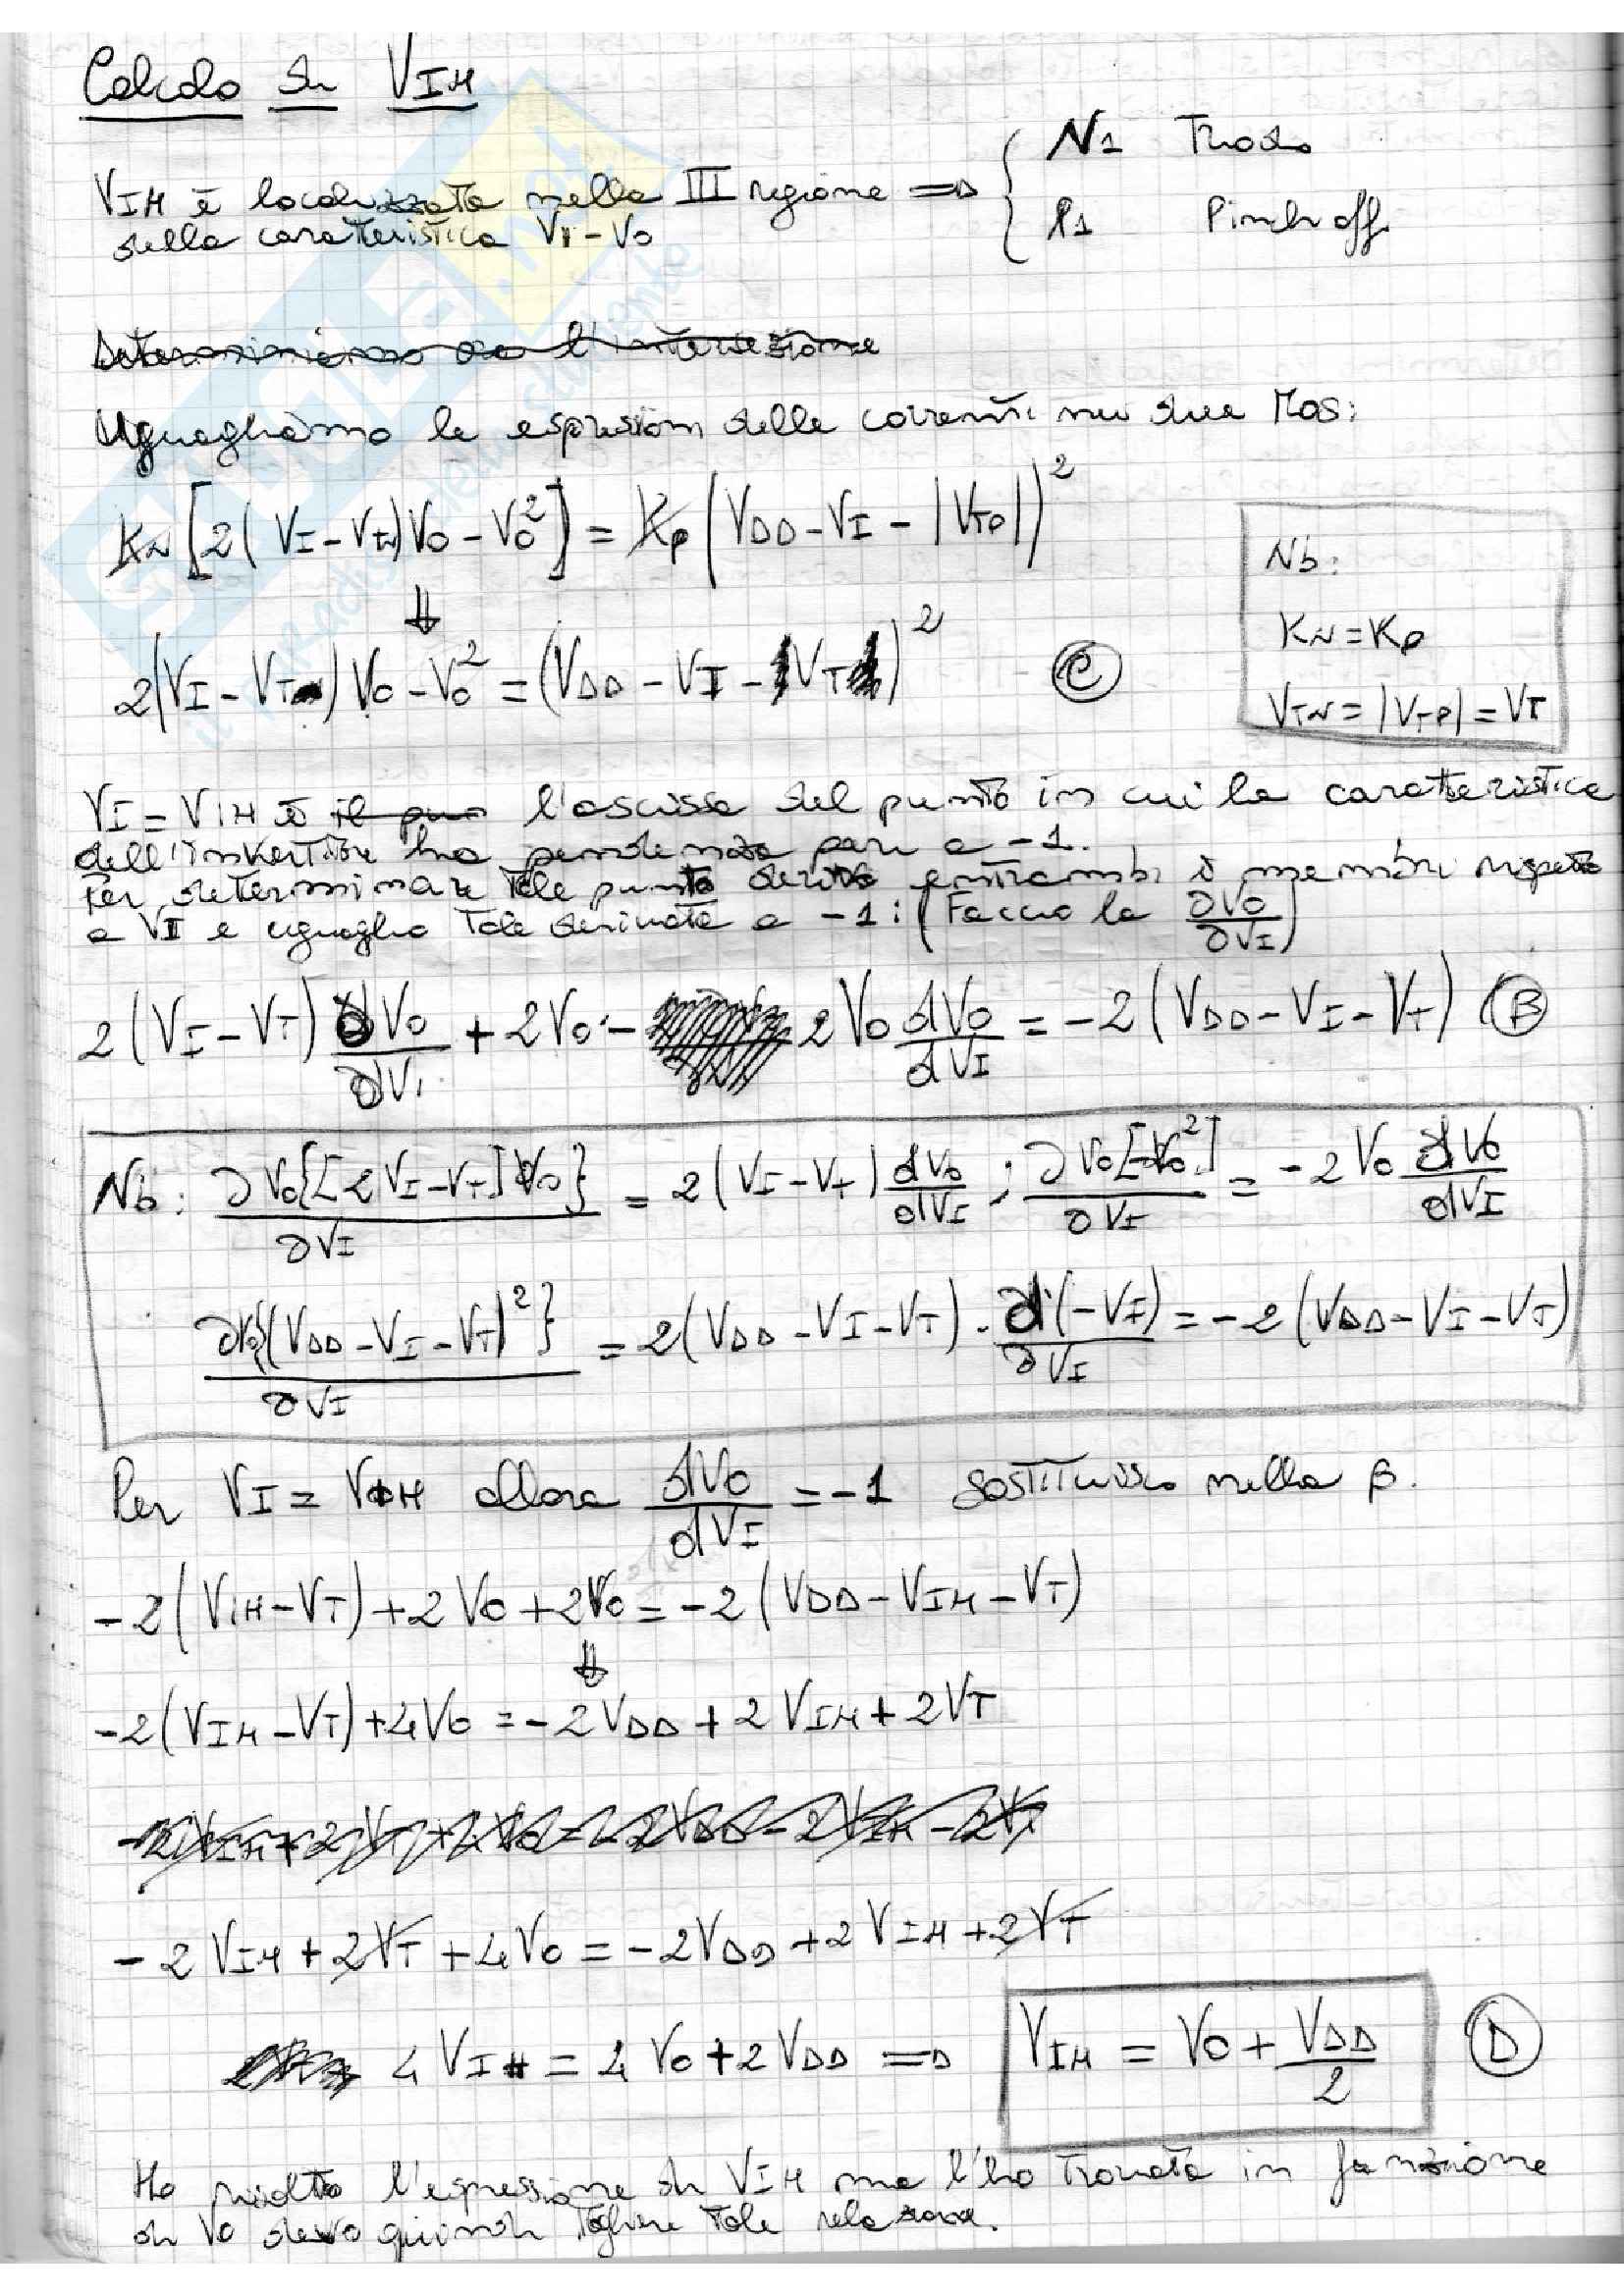 Calcolo di VIH
VIH è localizzata nella III regione => { N1 Triodo
della caratteristica VI-VO P1 Pinch off
Determiniamo l'intersezione
Uguagliamo le espressioni delle correnti nei due MOS:
KN[2(VI-VTN)VO-VO²] = KP(VDD-VI-|VTP|)²
⇓
2(VI-VT)VO-VO² = (VDD-VI-VT)² (C)
Nb:
KN=KP
VTN=|VTP|=VT
VI=VIH è il pun l'ascissa del punto in cui la caratteristica
dell'inverter ha pendenza pari a -1.
Per determinare tale punto derivo entrambi i membri rispetto
a VI e uguaglio tale derivata a -1: (Faccio la ∂VO/∂VI)
2(VI-VT) dVO/dVI + 2VO - 2VO dVO/dVI = -2(VDD-VI-VT) (B)
Nb: ∂VO{[2(VI-VT]VO}/∂VI = 2(VI-VT) dVO/dVI ; ∂VO[-VO²]/∂VI = -2VO dVO/dVI
∂VO{(VDD-VI-VT)²}/∂VI = 2(VDD-VI-VT) · d(-VI)/∂VI = -2(VDD-VI-VT)
Per VI = VIH allora dVO/dVI = -1 sostituisco nella β.
-2(VIH-VT)+2VO+2VO = -2(VDD-VIH-VT)
⇓
-2(VIH-VT)+4VO = -2VDD+2VIH+2VT
-2VIH+2VT+4VO = -2VDD-2VIH-2VT
-2VIH+2VT+4VO = -2VDD+2VIH+2VT
4VIH = 4VO+2VDD => VIH = VO + VDD/2 (D)
Ho risolto l'espressione di VIH ma l'ho trovata in funzione
di VO devo quindi togliere tale relazione.